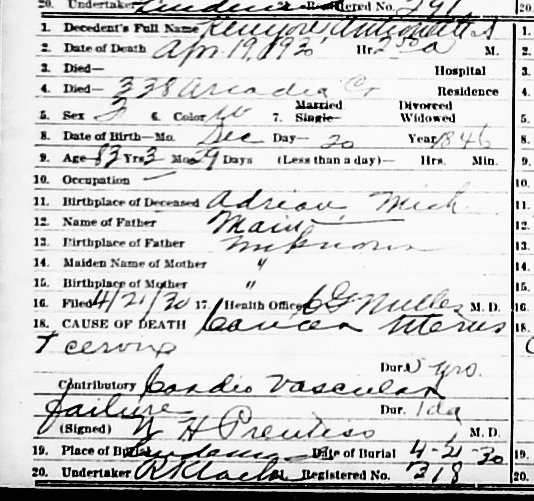 20. Undertaker Registered No. 291
1. Decedent's Full Name Antoinette S
2. Date of Death Apr. 19, 1930 Hr. 2 50 a M.
3. Died— Hospital
4. Died— 338 Arcadia Ct Residence
Married Divorced
5. Sex F 6. Color W 7. Single— Widowed
8. Date of Birth—Mo. Dec Day— 20 Year 1846
9. Age 83 Yrs 3 Mos 29 Days (Less than a day)— Hrs. Min.
10. Occupation —
11. Birthplace of Deceased Adrian Mich
12. Name of Father
13. Birthplace of Father unknown
14. Maiden Name of Mother "
15. Birthplace of Mother "
16. Filed 4/21/30 17. Health Officer M. D.
18. CAUSE OF DEATH Cancer Uterus
+ cervix
Dur. yrs.
Contributory Cardio Vascular
failure Dur. 1 da
(Signed) H Prentiss M. D.
19. Place of Burial Date of Burial 4-21-30
20. Undertaker 21. Registered No. 318